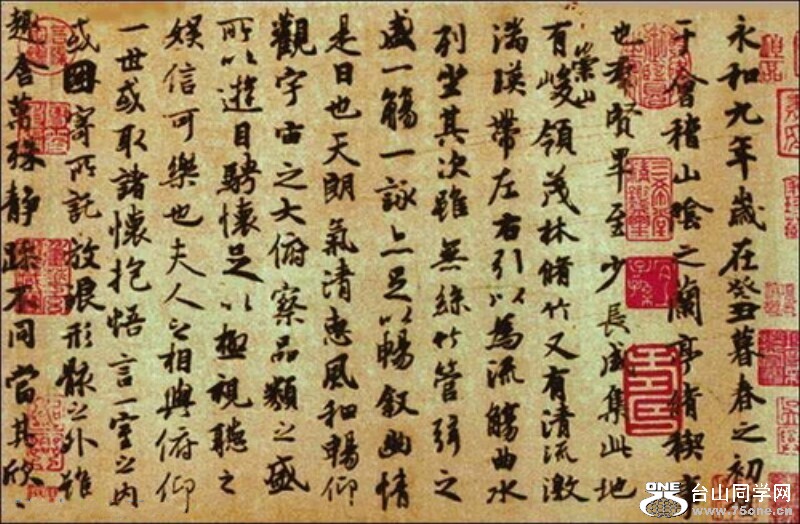 永和九年歲在癸丑暮春之初
于會稽山陰之蘭亭脩稧
也羣賢畢至少長咸集此地
有崇山峻領茂林脩竹又有清流激
湍暎帶左右引以為流觴曲水
列坐其次雖無絲竹管弦之
盛一觴一詠亦足以暢敘幽情
是日也天朗氣清惠風和暢仰
觀宇宙之大俯察品類之盛
所以遊目騁懷足以極視聽之
娛信可樂也夫人之相與俯仰
一世或取諸懷抱悟言一室之內
或因寄所託放浪形骸之外雖
趣舍萬殊靜躁不同當其欣
ONE 台山同学网
www.75one.com